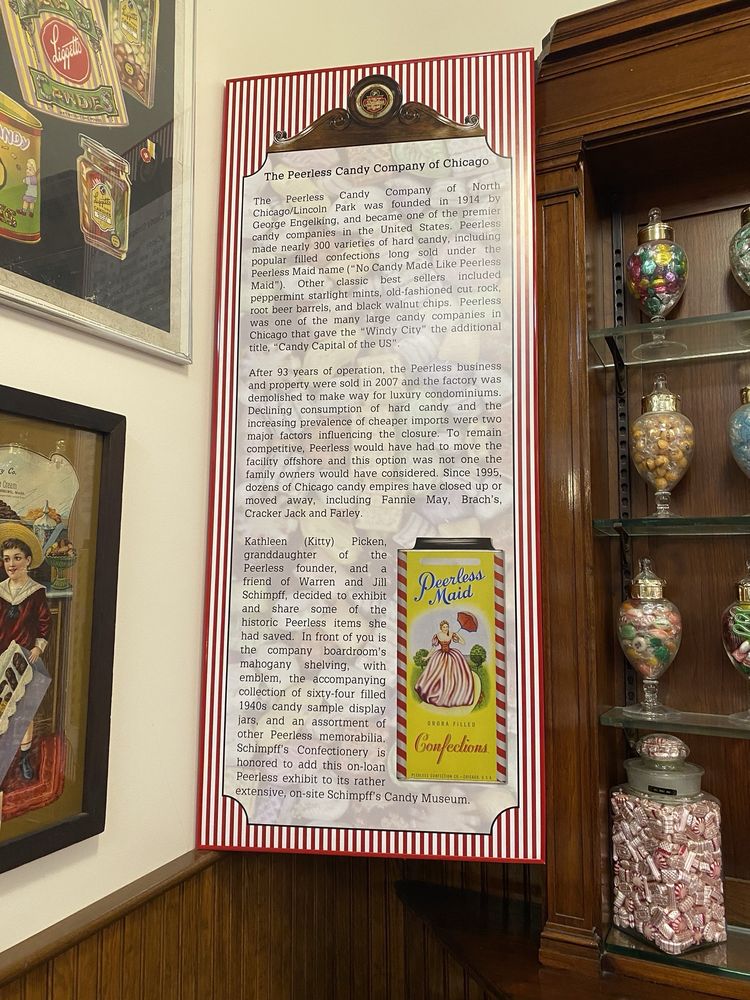 Liggetts
CANDIES
Liggetts
The Peerless Candy Company of Chicago
The Peerless Candy Company of North
Chicago/Lincoln Park was founded in 1914 by
George Engelking, and became one of the premier
candy companies in the United States. Peerless
made nearly 300 varieties of hard candy, including
popular filled confections long sold under the
Peerless Maid name ("No Candy Made Like Peerless
Maid"). Other classic best sellers included
peppermint starlight mints, old-fashioned cut rock,
root beer barrels, and black walnut chips. Peerless
was one of the many large candy companies in
Chicago that gave the "Windy City" the additional
title, "Candy Capital of the US".
After 93 years of operation, the Peerless business
and property were sold in 2007 and the factory was
demolished to make way for luxury condominiums.
Declining consumption of hard candy and the
increasing prevalence of cheaper imports were two
major factors influencing the closure. To remain
competitive, Peerless would have had to move the
facility offshore and this option was not one the
family owners would have considered. Since 1995,
dozens of Chicago candy empires have closed up or
moved away, including Fannie May, Brach's,
Cracker Jack and Farley.
Kathleen (Kitty) Picken,
granddaughter of the
Peerless founder, and a
friend of Warren and Jill
Schimpff, decided to exhibit
and share some of the
historic Peerless items she
had saved. In front of you is
the company boardroom's
mahogany shelving, with
emblem, the accompanying
collection of sixty-four filled
1940s candy sample display
jars, and an assortment of
other Peerless memorabilia.
Schimpff's Confectionery is
honored to add this on-loan
Peerless exhibit to its rather
extensive, on-site Schimpff's Candy Museum.
Peerless
Maid
FILLED
Confections
PEERLESS CONFECTION CO · CHICAGO, U.S.A.